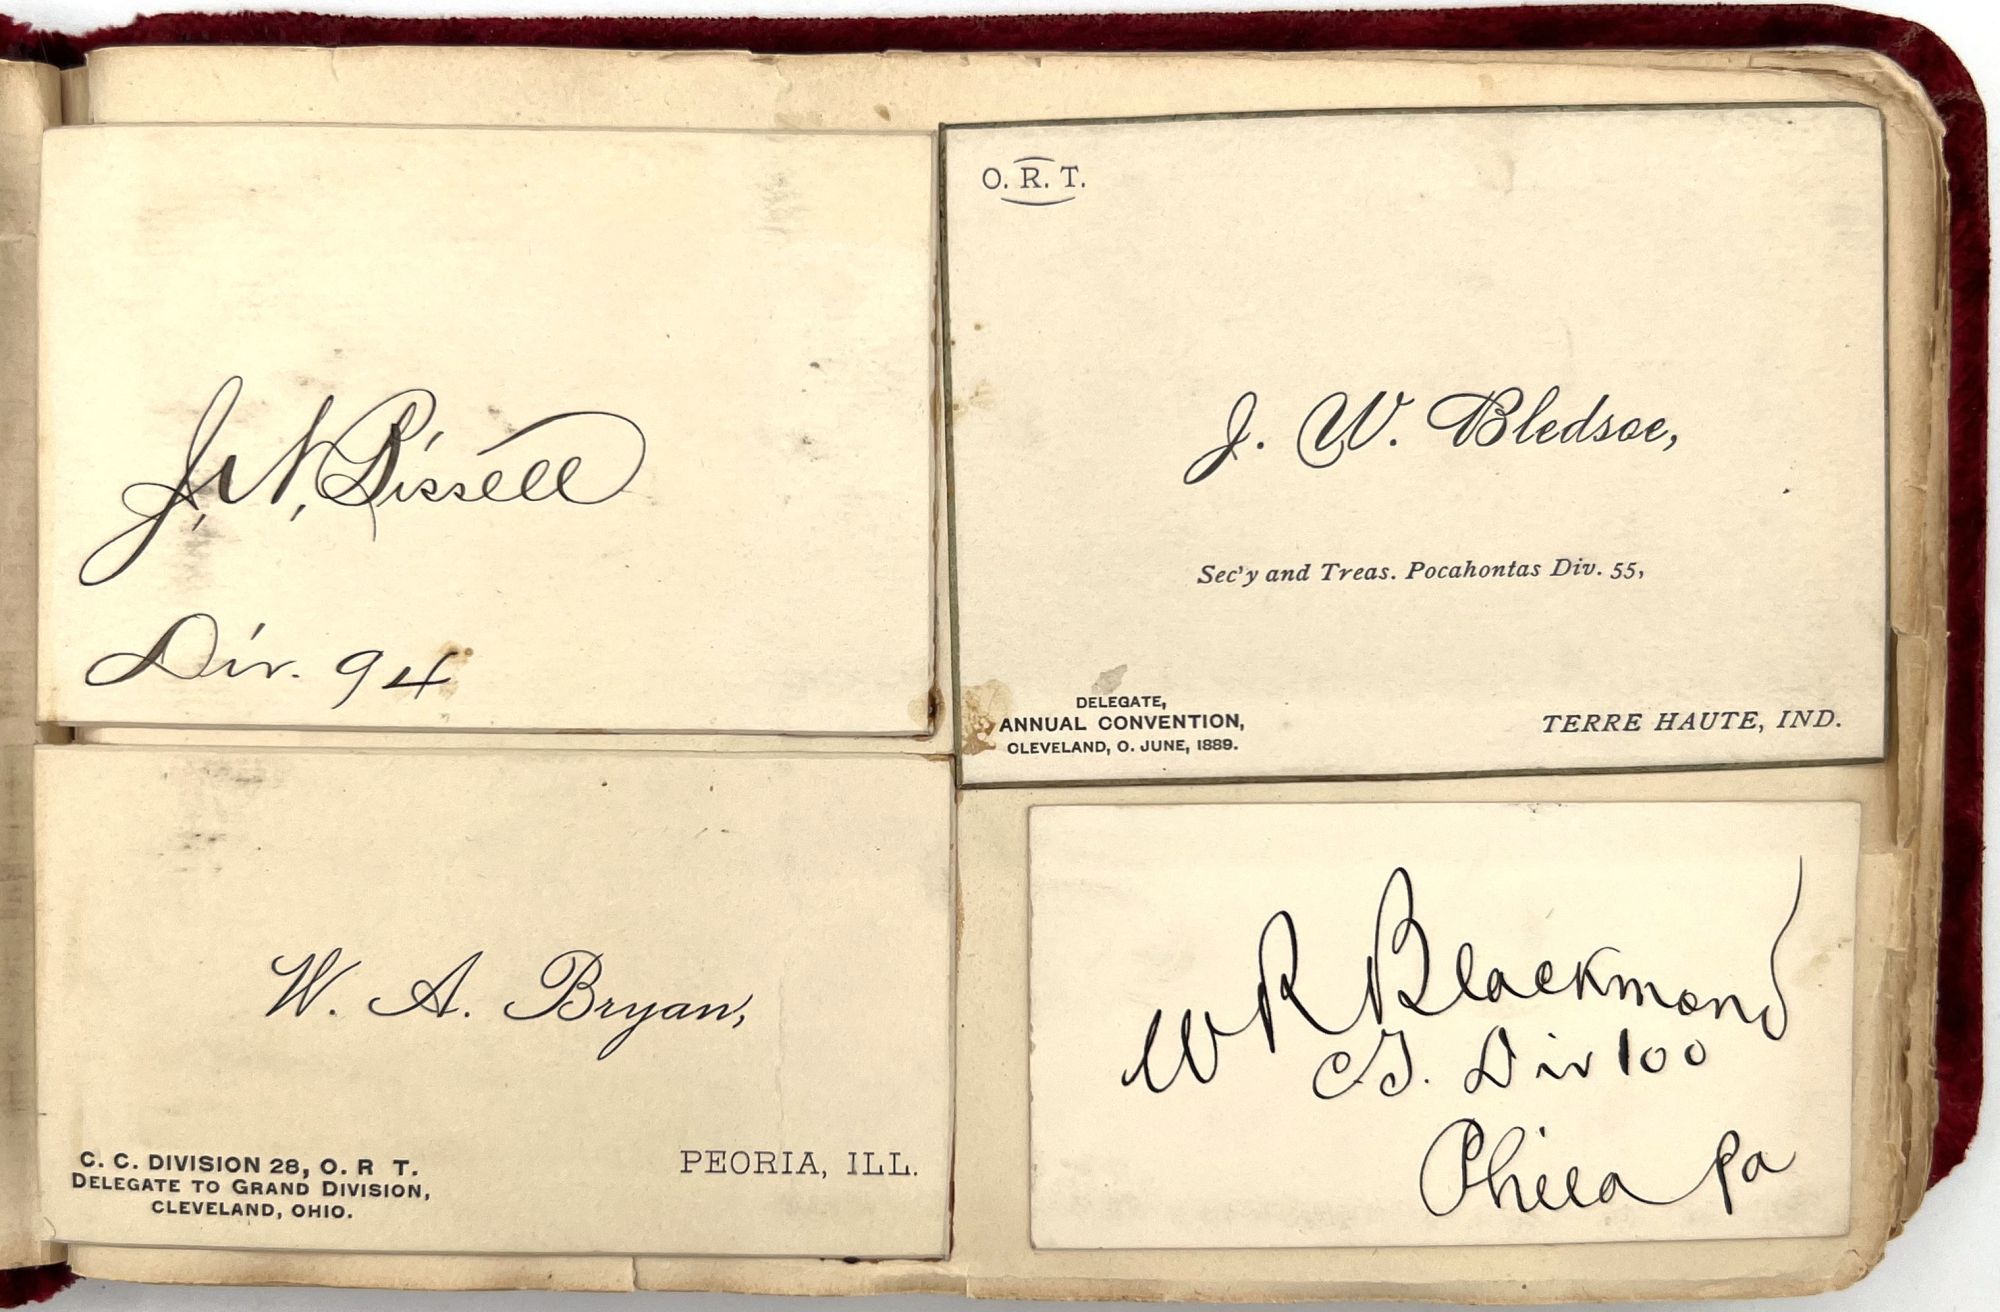 J. N. Bissell
Div. 94
O. R. T.
J. W. Bledsoe,
Sec'y and Treas. Pocahontas Div. 55,
DELEGATE,
ANNUAL CONVENTION,
CLEVELAND, O. JUNE, 1889.
TERRE HAUTE, IND.
W. A. Bryan,
C. C. DIVISION 28, O. R T.
DELEGATE TO GRAND DIVISION,
CLEVELAND, OHIO.
PEORIA, ILL.
W R Blackmond
Div 100
Phila Pa